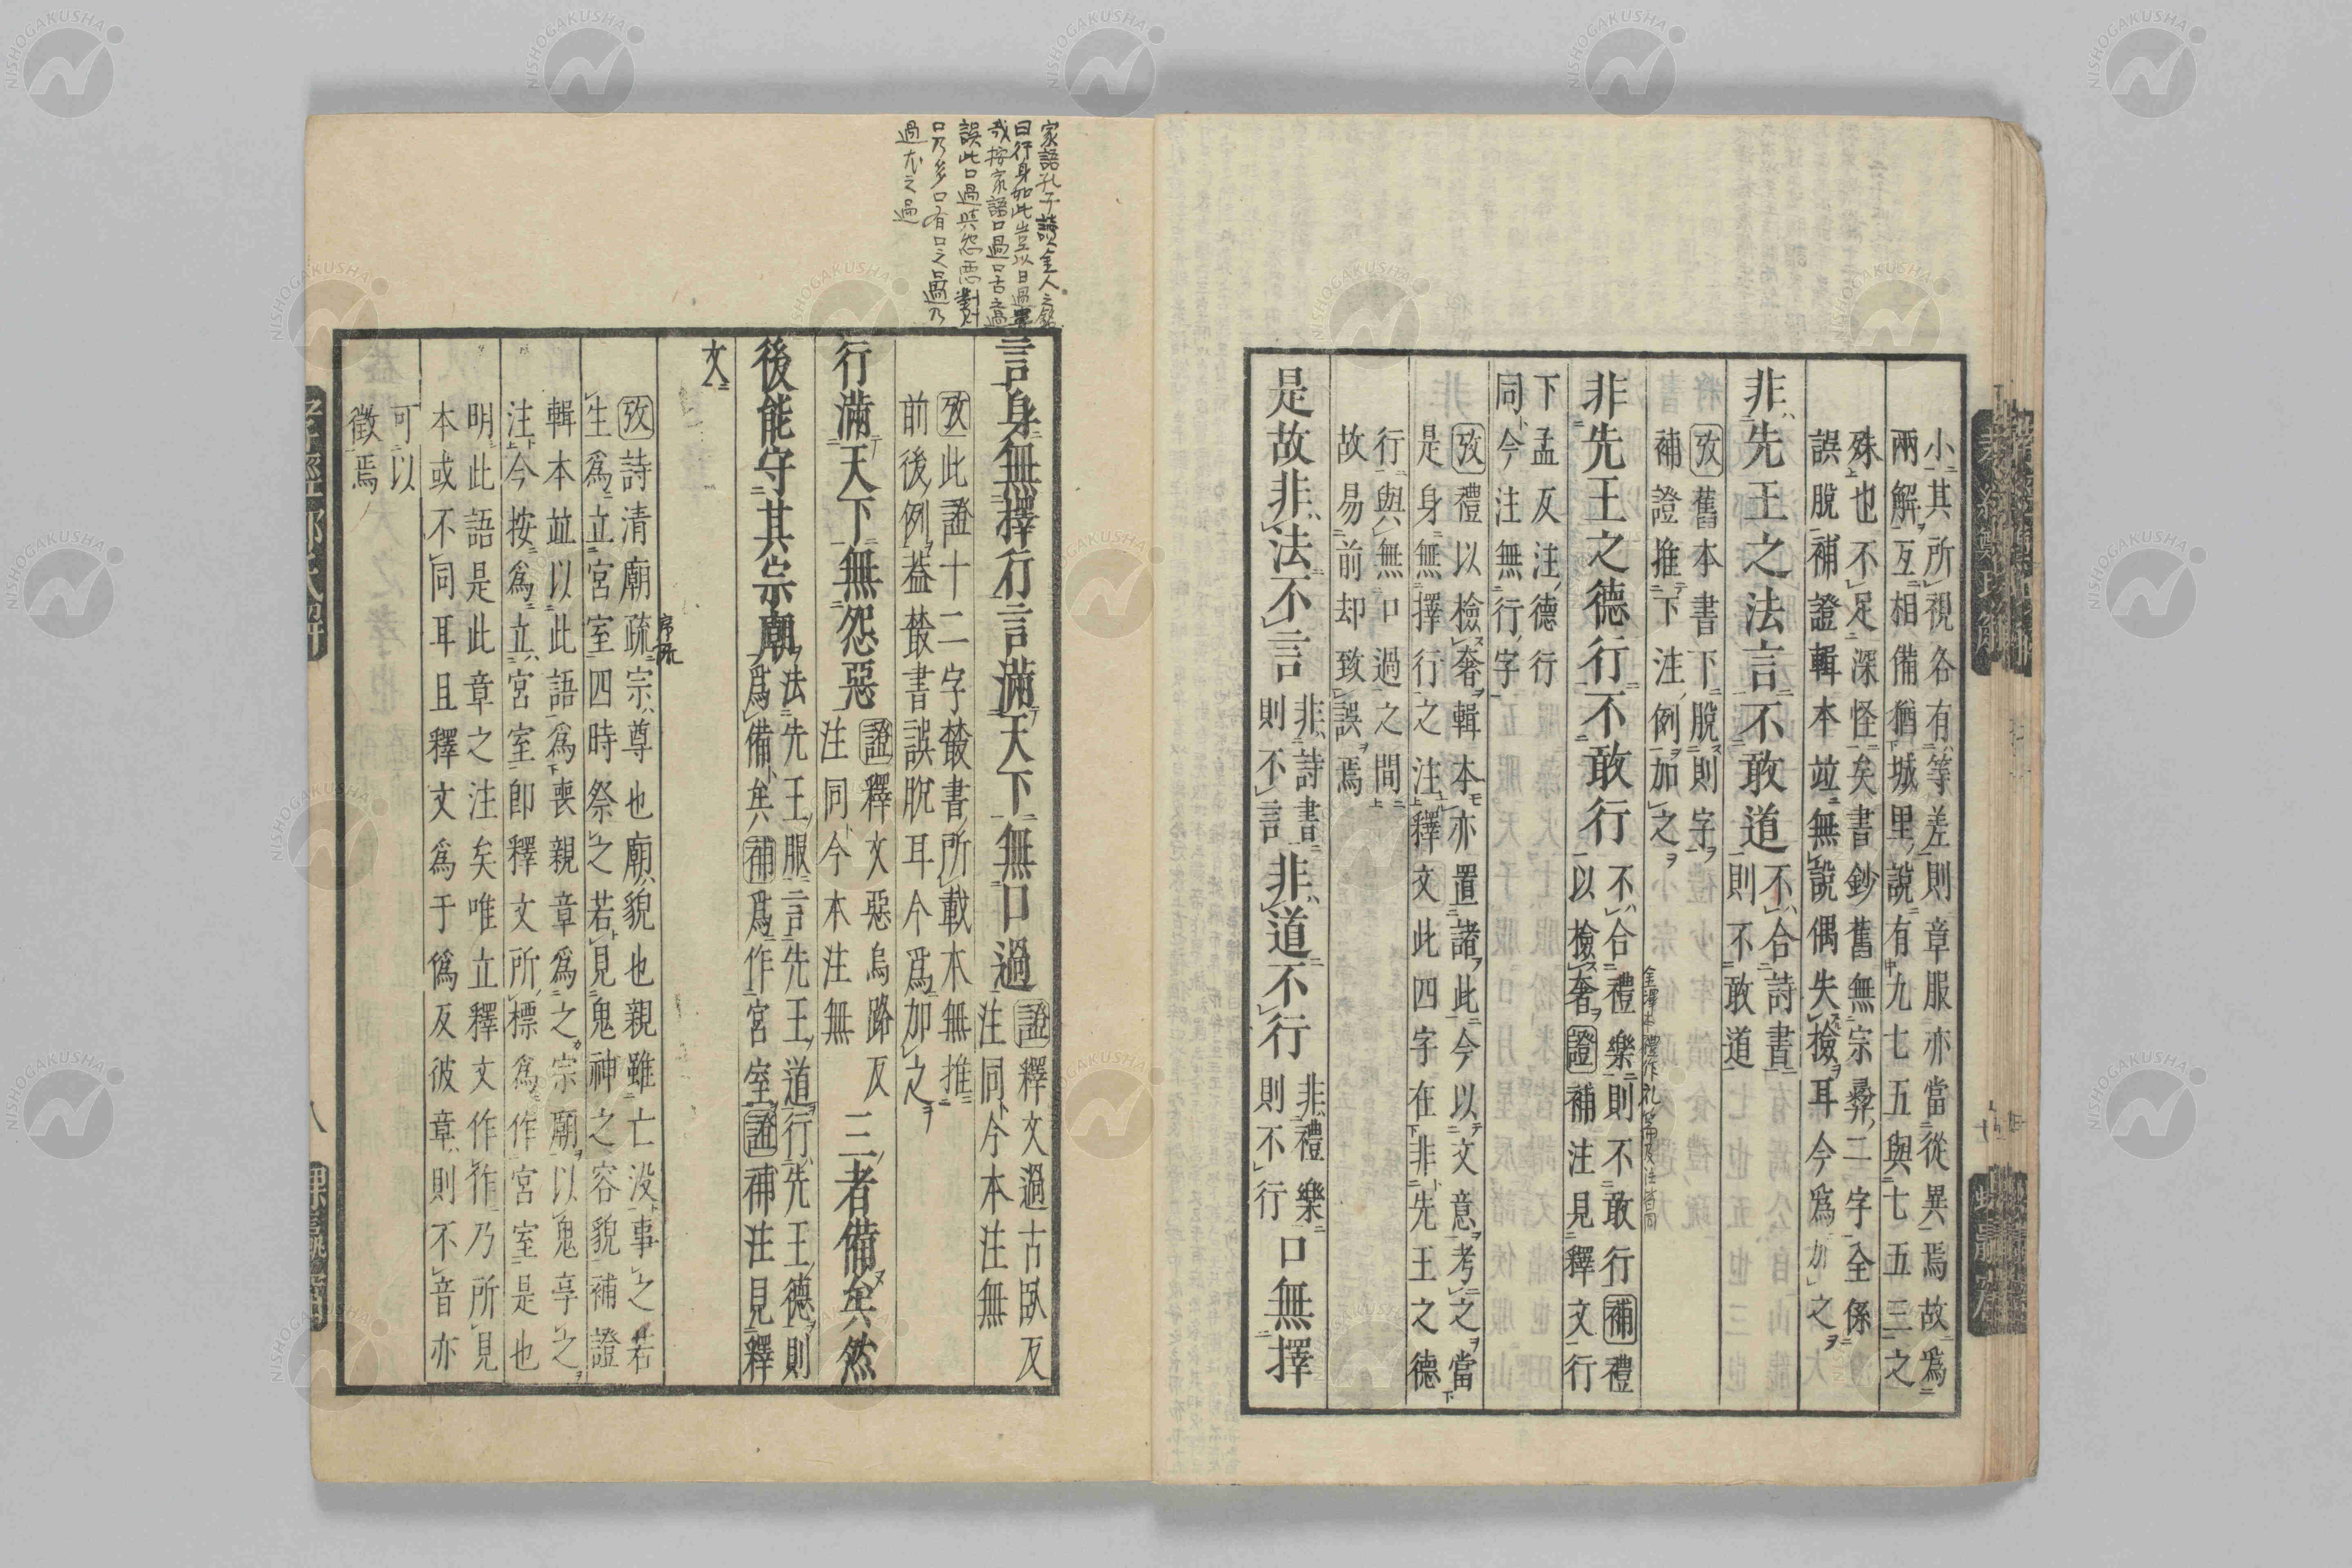 小其所視各有等差則章服亦當從異焉故爲
兩解互相備猶城里說有九七五與七五三之
殊也不足深怪矣書鈔舊無宗彝二字全係
誤脫補證輯本竝無說偶失檢耳今爲加之
非先王之法言不敢道
不合詩書
則不敢道
攷舊本書下脫則字
補證推下注例加之
非先王之德行不敢行
不合禮樂則不敢行補禮
以檢奢證補注見釋文行
下孟反注德行
同今注無行字
攷禮以檢奢輯本亦置諸此今以文意考之當
是身無擇行之注釋文此四字在非先王之德
行與無口過之間
故易前却致誤焉
是故非法不言
非詩書
則不言
非道不行
非禮樂
則不行
口無擇
家語孔子讀金人之銘
曰行身如此豈以口過患
哉按家語口過口舌之過
誤此口過與怨惡對則
口乃多口有口之過乃
過尤之過
言身無擇行言滿天下無口過
證釋文過古臥反
注同今本注無
攷此證十二字叢書所載本無推
前後例蓋叢書誤脫耳今爲加之
行滿天下無怨惡
證釋文惡烏路反
注同今本注無
三者備矣然
後能守其宗廟
法先王服言先王道行先王德則
爲備矣補爲作宮室證補注見釋
文
攷詩清廟疏宗尊也廟貌也親雖亡沒事之若
生爲立宮室四時祭之若見鬼神之容貌補證
輯本竝以此語爲喪親章爲之宗廟以鬼享之
注今按爲立宮室卽釋文所標爲作宮室是也
明此語是此章之注矣唯立釋文作作乃所見
本或不同耳且釋文爲于僞反彼章則不音亦
可以
徵焉
孝經鄭氏解
八